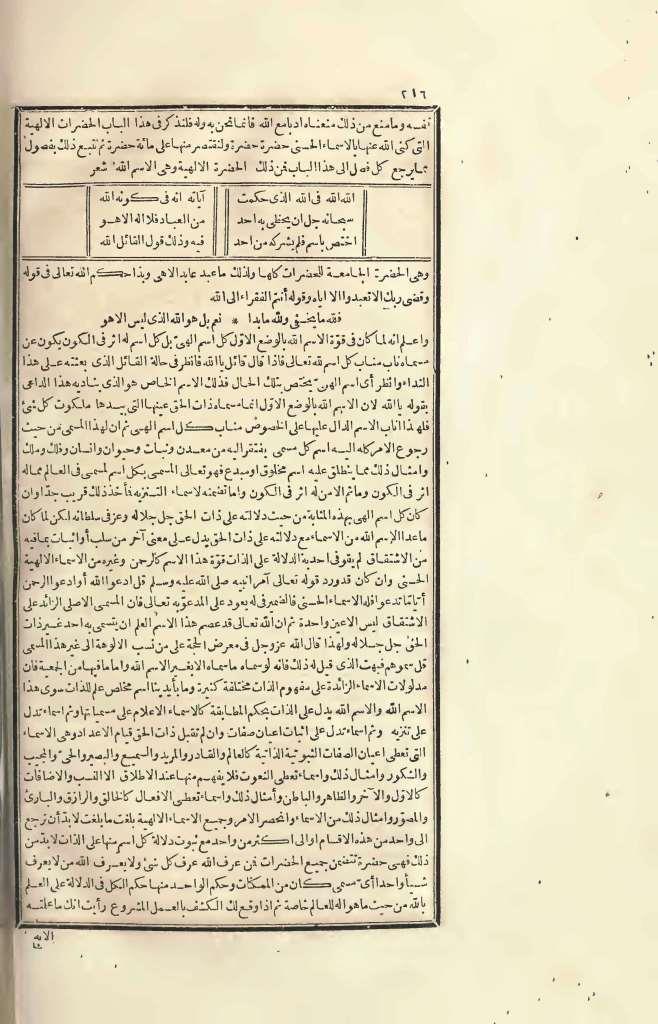 ٢١٦
نفسه وما منع من ذلك منعناه ادبا مع الله فانما نحن به وله فلنذكر فى هذا الباب الحضرات الالهية
التى كنى الله عنها بالاسماء الحسنى حضرة حضرة ولنقتصر منها على مائة حضرة ثم نتبع ذلك بفصول
مما يرجع كل فصل الى هذا الباب فمن ذلك الحضرة الالهية وهى الاسم الله شعر
الله الله فى الله الذى حكمت آياته انه فى كونه الله
سبحانه جل ان يحظى به احد من العباد فلا اله الا هو
اختص باسم فلم يشركه من احد فيه وذلك قول القائل الله
وهى الحضرة الجامعة للحضرات كلها ولذلك ما عبد عابد الا هى وبذا حكم الله تعالى فى قوله
وقضى ربك الا تعبدوا الا اياه وقوله أنتم الفقراء الى الله
فلله ما يخفى ولله ما بدا * نعم بل هو الله الذى ليس الا هو
واعلم انه لما كان فى قوة الاسم الله بالوضع الاول كل اسم الهى بل كل اسم له اثر فى الكون يكون عن
مسماه ناب مناب كل اسم لله تعالى فاذا قال قائل يا الله فانظر فى حالة القائل التى بعثته على هذا
النداء وانظر أى اسم الهى يختص بتلك الحال فذلك الاسم الخاص هو الذى يناديه هذا الداعى
بقوله يا الله لان الاسم الله بالوضع الاول انما مسماه ذات الحق عينها التى بيدها ملكوت كل شئ
فلهذا ناب الاسم الدال عليها على الخصوص مناب كل اسم الهى ثم ان لهذا المسمى من حيث
رجوع الامر كله اليه اسم كل مسمى يفتقر اليه من معدن ونبات وحيوان وانسان وفلك وملك
وامثال ذلك مما ينطلق عليه اسم مخلوق او مبدع فهو تعالى المسمى بكل اسم لمسمى فى العالم مما له
اثر فى الكون وما ثم الا من له اثر فى الكون واما تضمنه لاسماء التنزيه فأخذ ذلك قريب جدا وان
كان كل اسم الهى بهذه المثابة من حيث دلالته على ذات الحق جل جلاله وعز فى سلطانه لكن لما كان
ماعدا الاسم الله من الاسماء مع دلالته على ذات الحق يدل على معنى آخر من سلب أو اثبات بما فيه
من الاشتقاق لم يقو فى احدية الدلالة على الذات قوة هذا الاسم كالرحمن وغيره من الاسماء الالهية
الحسنى وان كان قد ورد قوله تعالى آمرا نبيه صلى الله عليه وسلم قل ادعوا الله أو ادعوا الرحمن
أيا ما تدعوا فله الاسماء الحسنى فالضمير فى له يعود على المدعو به تعالى فان المسمى الاصلى الزائد على
الاشتقاق ليس الا عين واحدة ثم ان الله تعالى قد عصم هذا الاسم العلم ان يتسمى به احد غير ذات
الحق جل جلاله ولهذا قال الله عز وجل فى معرض الحجة على من نسب الالوهة الى غير هذا المسمى
قل سموهم فبهت الذى قيل له ذلك فانه لو سماه ما سماه الا بغير الاسم الله واما ما فيها من الجمعية فان
مدلولات الاسماء الزائدة على مفهوم الذات مختلفة كثيرة وما بأيدينا اسم مخلص علم للذات سوى هذا
الاسم الله والاسم الله يدل على الذات بحكم المطابقة كالاسماء الاعلام على مسمياتها وثم اسماء تدل
على تنزيه وثم اسماء تدل على اثبات اعيان صفات وان لم تقبل ذات الحق قيام الاعداد وهى الاسماء
التى تعطى اعيان الصفات الثبوتية الذاتية كالعالم والقادر والمريد والسميع والبصير والحى والمجيب
والشكور وامثال ذلك واسماء تعطى النعوت فلا يفهم منها عند الاطلاق الا النسب والاضافات
كالاول والآخر والظاهر والباطن وأمثال ذلك واسماء تعطى الافعال كالخالق والرازق والبارئ
والمصور وامثال ذلك من الاسماء وانحصر الامر وجميع الاسماء الالهية بلغت ما بلغت لا بد أن ترجع
الى واحد من هذه الاقسام او الى اكثر من واحد مع ثبوت دلالة كل اسم منها على الذات لا بد من
ذلك فهى حضرة تتضمن جميع الحضرات فمن عرف الله عرف كل شئ ولا يعرف الله من لا يعرف
شيأ واحدا أى مسمى كان من الممكنات وحكم الواحد منها حكم الكل فى الدلالة على العلم
بالله من حيث ما هو اله للعالم خاصة ثم اذا وقع لك الكشف بالعمل المشروع رأيت انك ما علمته
الا به